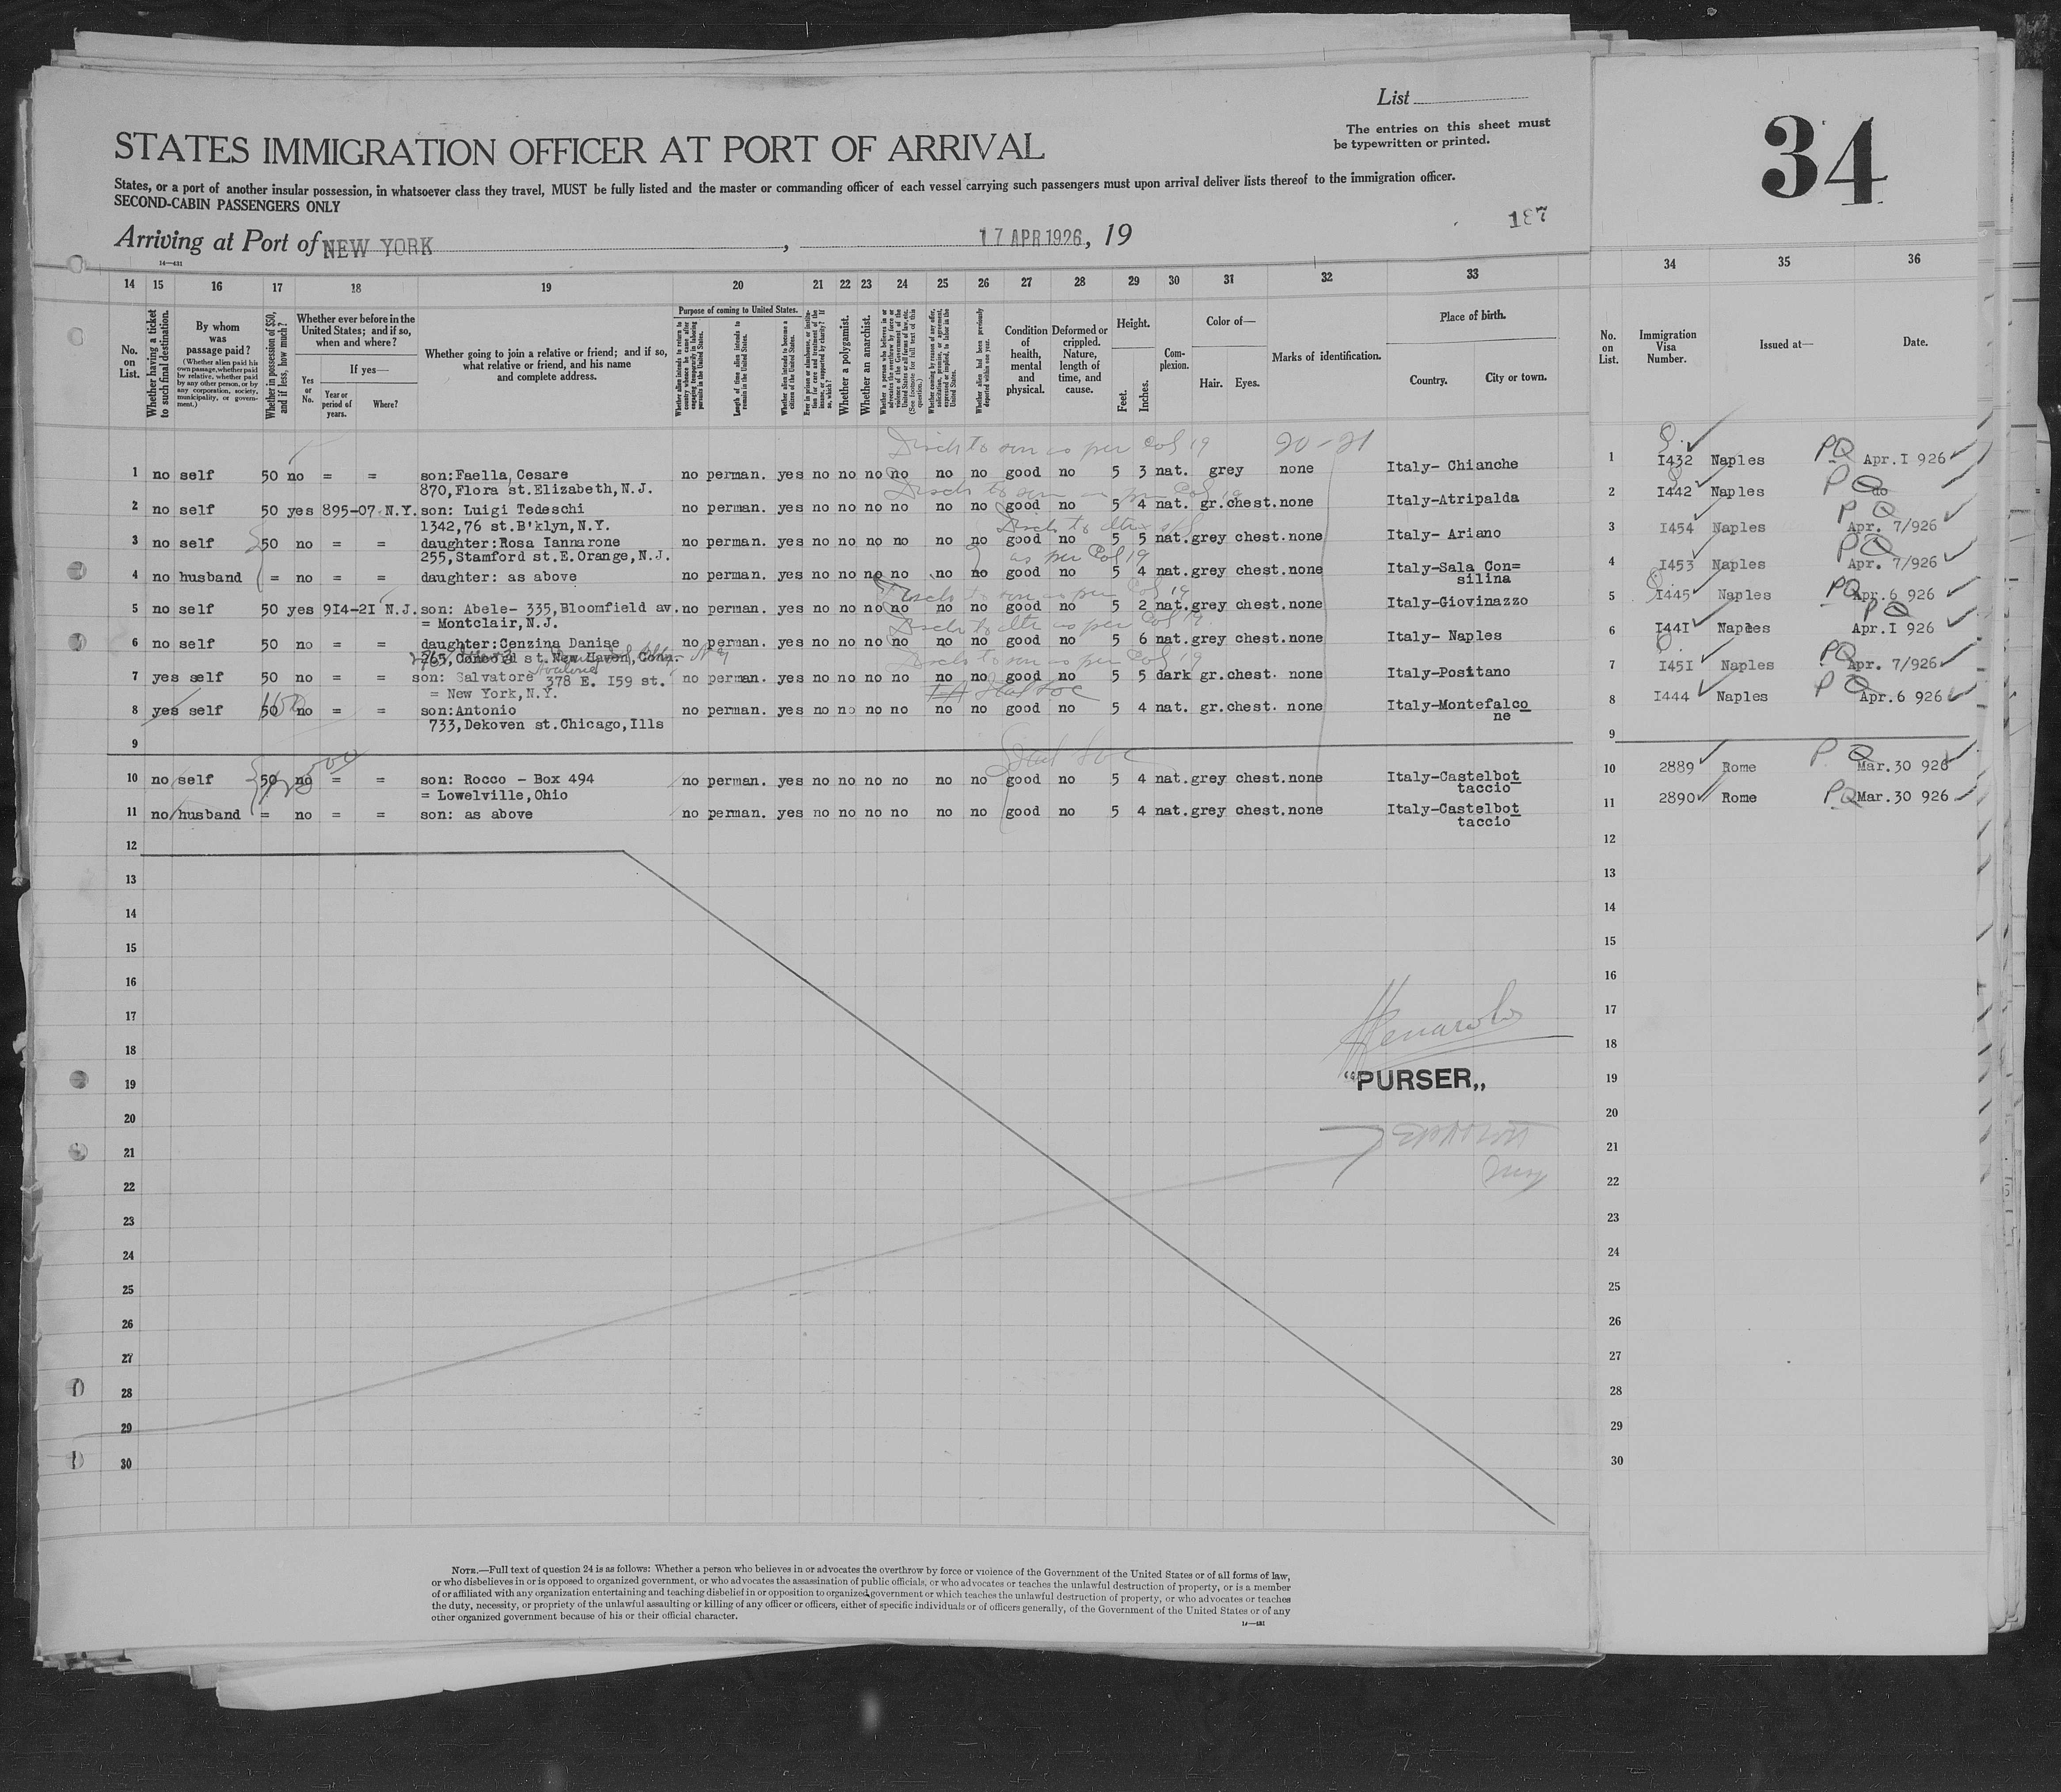 List
The entries on this sheet must
be typewritten or printed.
34
STATES IMMIGRATION OFFICER AT PORT OF ARRIVAL
States, or a port of another insular possession, in whatsoever class they travel, MUST be fully listed and the master or commanding officer of each vessel carrying such passengers must upon arrival deliver lists thereof to the immigration officer.
SECOND-CABIN PASSENGERS ONLY
187
Arriving at Port of NEW YORK, 17 APR 1926, 19
14—431
14 15 16 17 18 19 20 21 22 23 24 25 26 27 28 29 30 31 32 33 34 35 36
No. on List.
Whether having a ticket to such final destination.
By whom was passage paid?
(Whether alien paid his own passage, whether paid by relative, whether paid by any other person, or by any corporation, society, municipality, or government.)
Whether in possession of $50, and if less, how much?
Whether ever before in the United States; and if so, when and where?
Yes or No.
If yes—
Year or period of years.
Where?
Whether going to join a relative or friend; and if so, what relative or friend, and his name and complete address.
Purpose of coming to United States.
Length of time alien intends to remain in the United States.
Whether alien intends to become a citizen of the United States.
Whether a polygamist.
Whether an anarchist.
Whether alien had been previously deported within one year.
Condition of health, mental and physical.
Deformed or crippled. Nature, length of time, and cause.
Height.
Feet. Inches.
Complexion.
Color of—
Hair. Eyes.
Marks of identification.
Place of birth.
Country. City or town.
No. on List.
Immigration Visa Number.
Issued at—
Date.
Disch to son as per Col 19 20-21
1 no self 50 no = = son:Faella, Cesare no perman. yes no no no no no no good no 5 3 nat. grey none Italy- Chianche 1 I432 Naples PQ Apr.I 926
870,Flora st.Elizabeth,N.J.
Disch to son as per Col 19
2 no self 50 yes 895-07 N.Y. son: Luigi Tedeschi no perman. yes no no no no no no good no 5 4 nat. gr.chest.none Italy-Atripalda 2 I442 Naples PQ do
1342,76 st.B'klyn,N.Y.
Disch to dtr
3 no self 50 no = = daughter:Rosa Iannarone no perman. yes no no no no no no good no 5 5 nat.grey chest.none Italy- Ariano 3 I454 Naples PQ Apr. 7/926
255,Stamford st.E.Orange,N.J.
as per Col 19
4 no husband = no = = daughter: as above no perman. yes no no no no no no good no 5 4 nat.grey chest.none Italy-Sala Con= 4 I453 Naples PQ Apr. 7/926
silina
Disch to son as per Col 19
5 no self 50 yes 9I4-2I N.J. son: Abele- 335,Bloomfield av. no perman. yes no no no no no no good no 5 2 nat.grey chest.none Italy-Giovinazzo 5 I445 Naples PQ Apr.6 926
= Montclair,N.J.
Disch to dtr as per Col 19.
6 no self 50 no = = daughter:Cenzina Danise no perman. yes no no no no no no good no 5 6 nat.grey chest.none Italy- Naples 6 I44I Naples PQ Apr.I 926
265,Concord st.New Haven,Conn.
Disch to son as per Col 19
7 yes self 50 no = = son: Salvatore 378 E. I59 st. no perman. yes no no no no no no good no 5 5 dark gr.chest. none Italy-Positano 7 I45I Naples PQ Apr. 7/926
= New York,N.Y.
8 yes self 50 no = = son:Antonio no perman. yes no no no no no no good no 5 4 nat. gr.chest. none Italy-Montefalco 8 I444 Naples PQ Apr.6 926
733,Dekoven st.Chicago,Ills ne
9 9
10 no self 50 no = = son: Rocco - Box 494 no perman. yes no no no no no no good no 5 4 nat.grey chest.none Italy-Castelbot 10 2889 Rome PQ Mar.30 926
= Lowelville,Ohio taccio
11 no husband = no = = son: as above no perman. yes no no no no no no good no 5 4 nat.grey chest.none Italy-Castelbot 11 2890 Rome PQ Mar.30 926
taccio
12 12
13 13
14 14
15 15
16 16
17 17
18 18
19 "PURSER„ 19
20 20
21 21
22 22
23 23
24 24
25 25
26 26
27 27
28 28
29 29
30 30
NOTE.—Full text of question 24 is as follows: Whether a person who believes in or advocates the overthrow by force or violence of the Government of the United States or of all forms of law,
or who disbelieves in or is opposed to organized government, or who advocates the assassination of public officials, or who advocates or teaches the unlawful destruction of property, or is a member
of or affiliated with any organization entertaining and teaching disbelief in or opposition to organized government or which teaches the unlawful destruction of property, or who advocates or teaches
the duty, necessity, or propriety of the unlawful assaulting or killing of any officer or officers, either of specific individuals or of officers generally, of the Government of the United States or of any
other organized government because of his or their official character.
14—431